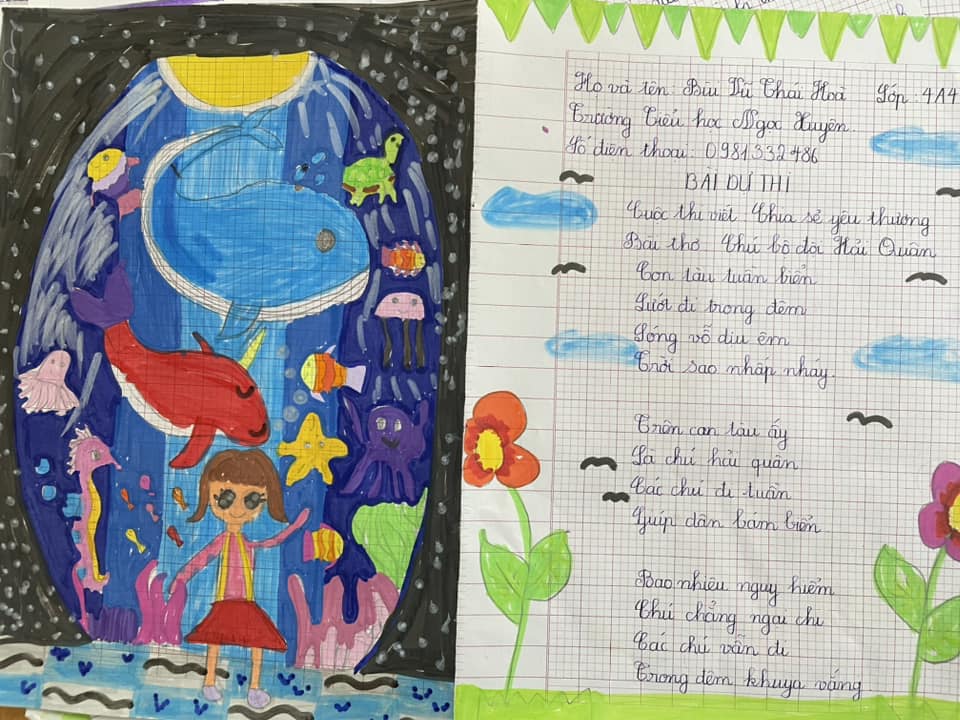 Họ và tên: Bùi Vũ Thái Hoà Lớp: 4A4
Trường Tiểu học Ngọc Xuyên.
Số điện thoại: 0981332486
BÀI DỰ THI
Cuộc thi viết Chia sẻ yêu thương
Bài thơ Chú bộ đội Hải Quân
Con tàu tuần biển
Lướt đi trong đêm
Sóng vỗ dịu êm
Trời sao nhấp nháy.
Trên con tàu ấy
Là chú hải quân
Các chú đi tuần
Giúp dân bám biển
Bao nhiêu nguy hiểm
Chú chẳng ngại chi
Các chú vẫn đi
Trong đêm khuya vắng